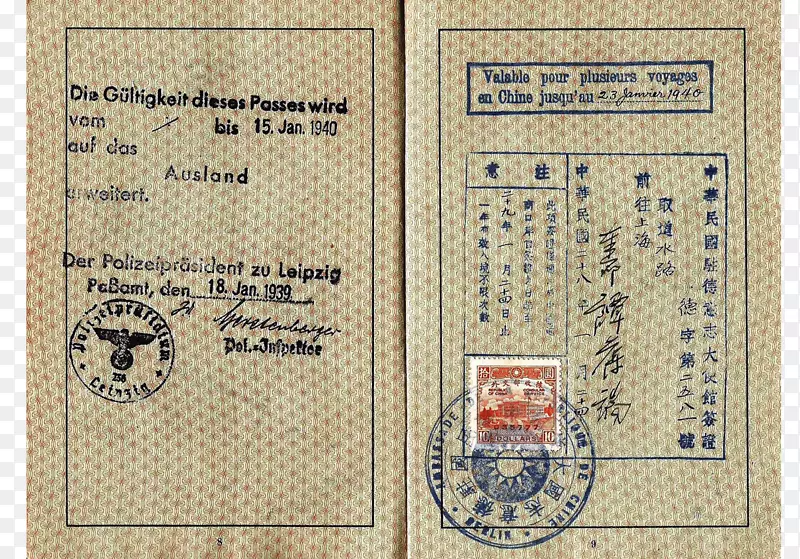 Die Gültigkeit dieses Passes wird
vom bis 15. Jan. 1940
auf das
Ausland
erweitert.
Der Polizeipräsident zu Leipzig
Paßamt, den 18. Jan. 1939
Pol.=Inspektor
Polizeipräsidium
256
Leipzig
8
Valable pour plusieurs voyages
en Chine jusqu'au 23 Janvier 1940
中華民國駐德意志大使館簽證
德字第二五八一號
取道水路
前往上海
中華民國二十八年一月二四
注意
二十九年一月二四日止
拾圓
REPUBLIC OF CHINA
055777
10 DOLLARS 10
DE CHINE
BERLIN
9